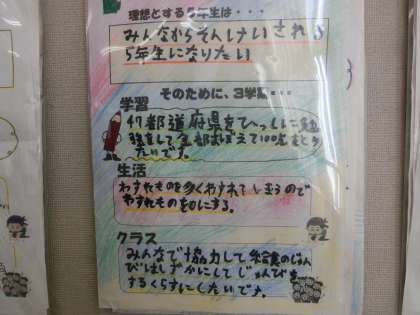 理想とする5年生は・・・
みんなからそんけいされる
5年生になりたい
そのために、3学期・・・
学習
47都道府県をひっしに勉
強をして全部おぼえて100点をとり
たいです。
生活
わすれものを多くわすれてしまうので
わすれものを0にする。
クラス
みんなで協力して給食のじゅん
びはしずかにしてじゅんびを
するくらすにしたいです。